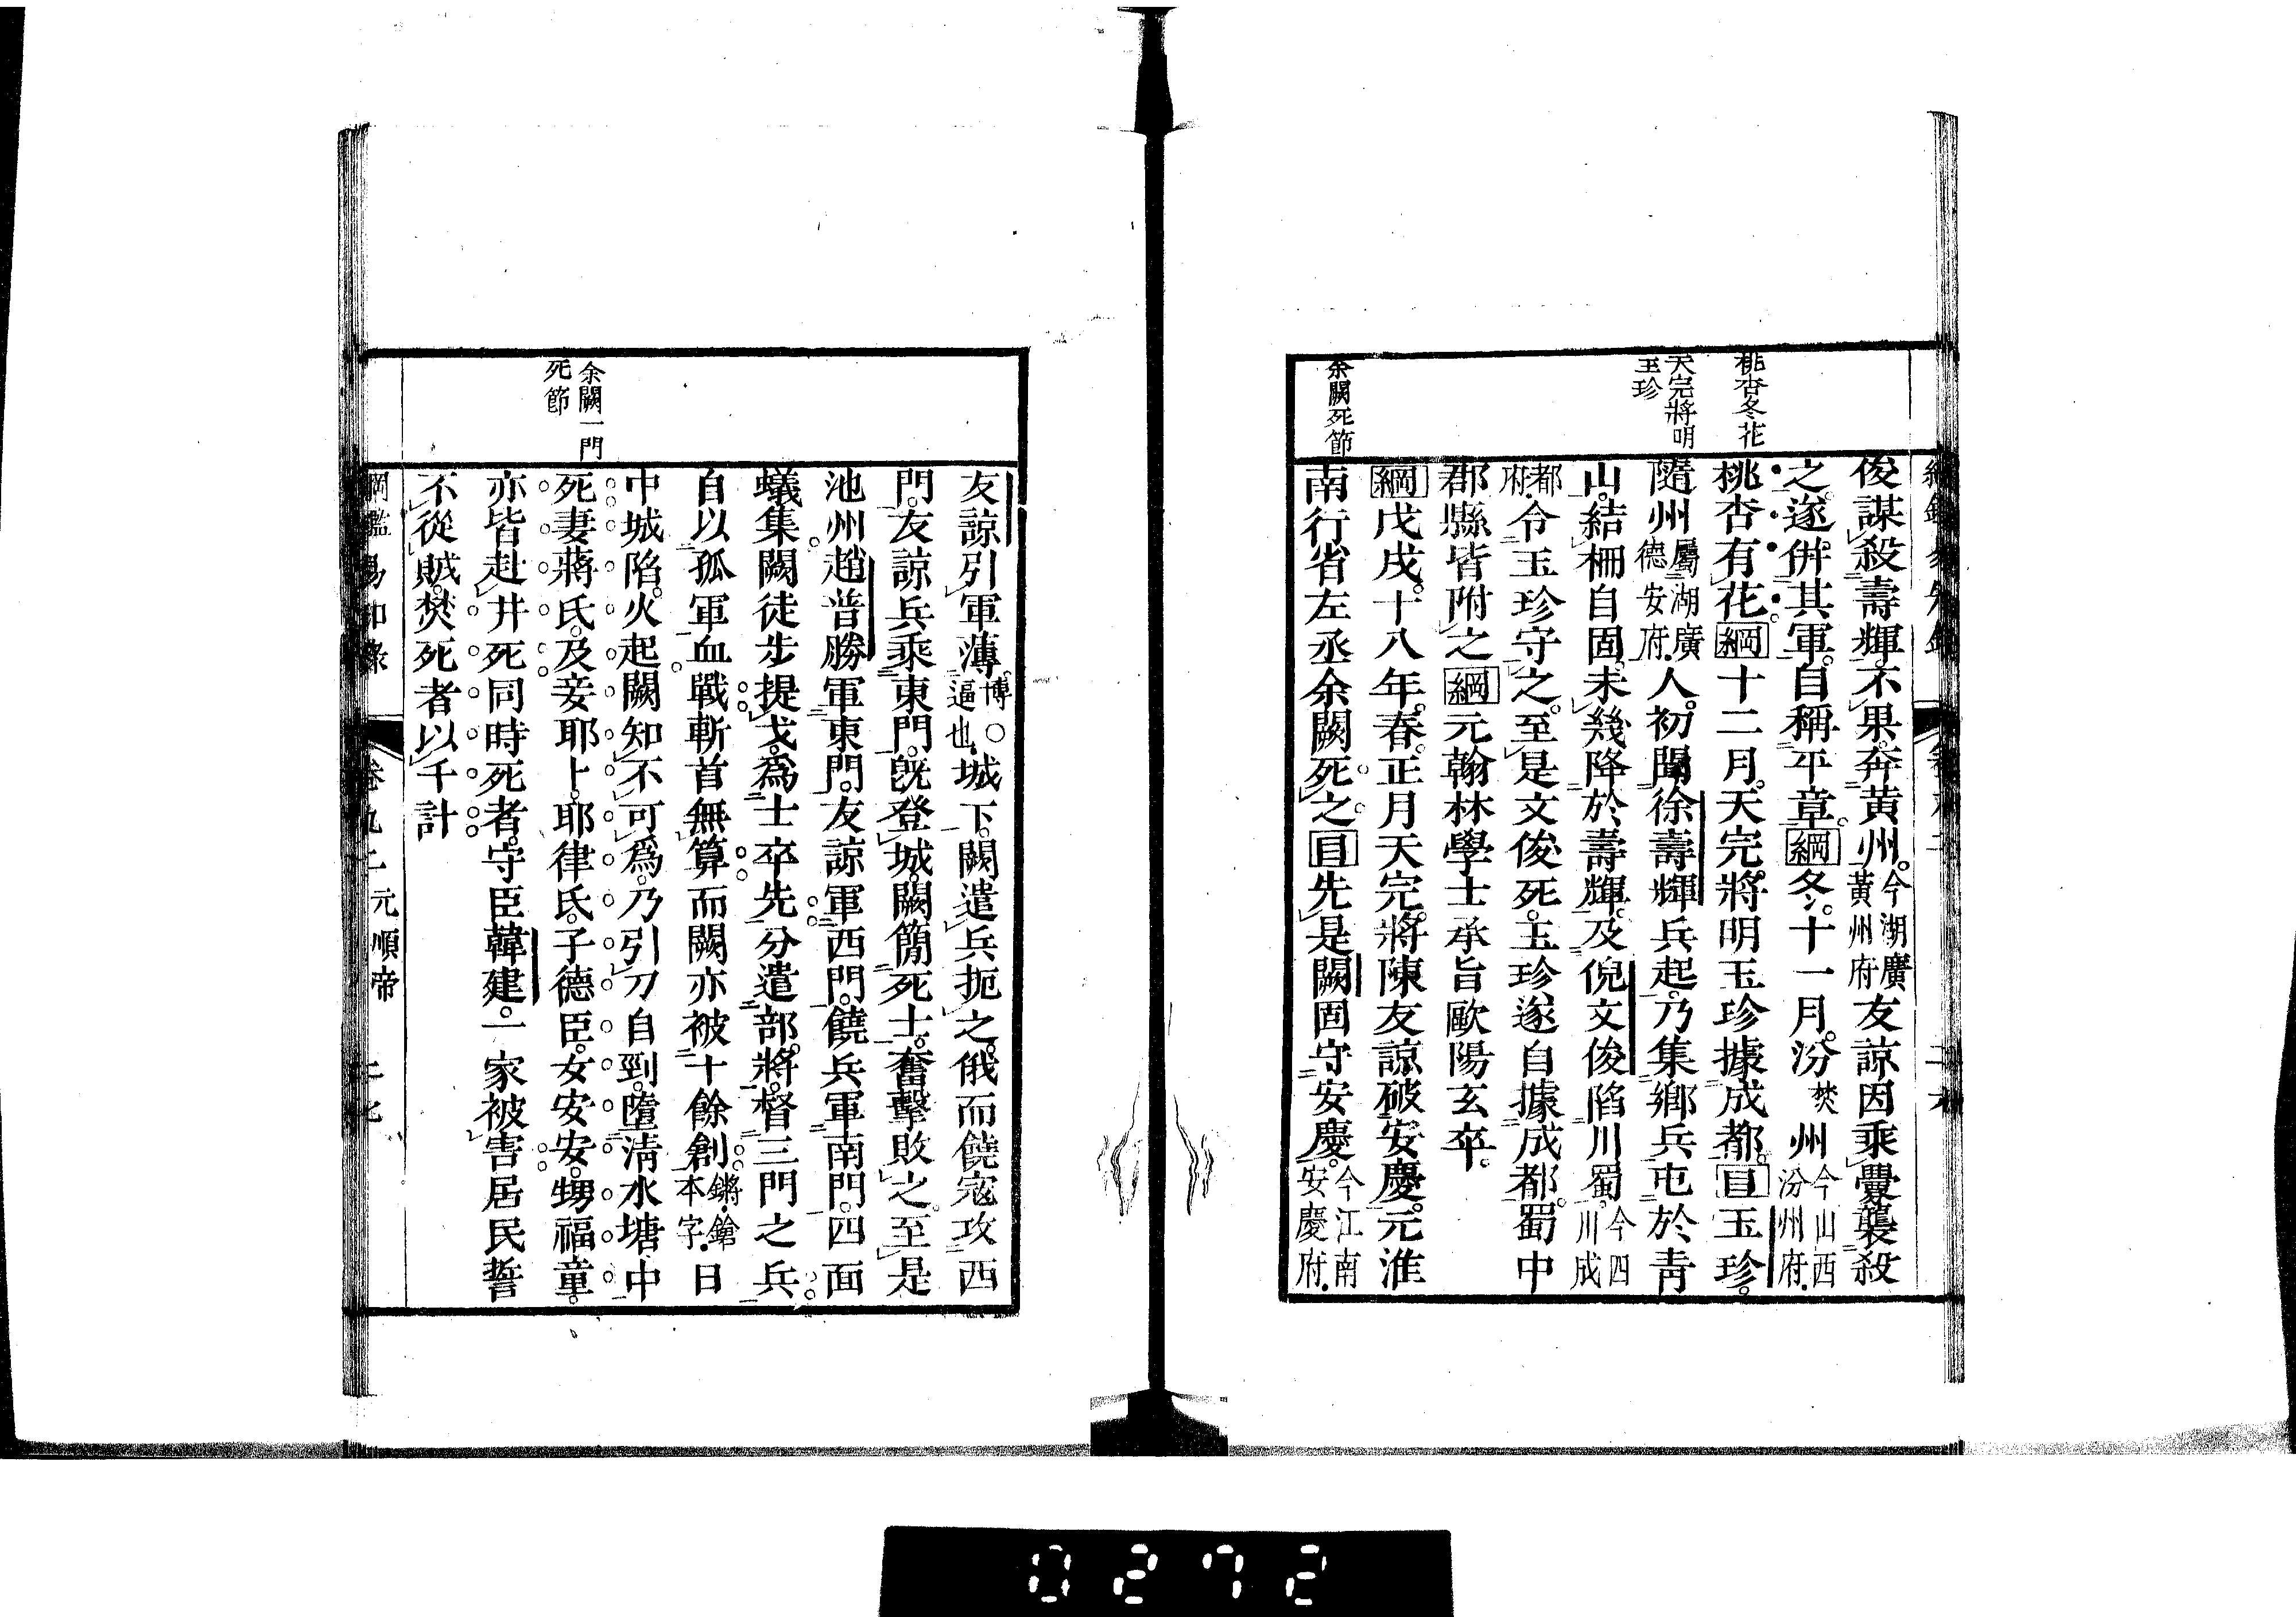 桃杏冬花
天完將明
玉珍
余闕死節
俊謀殺壽輝。不果。奔黃州。今湖廣黃州府友諒因乘釁襲殺
之。遂併其軍。自稱平章。綱冬。十一月。汾焚州今山西汾州府.
桃杏有花。綱十二月。天完將明玉珍據成都。目玉珍。
隨州屬湖廣德安府.人。初聞徐壽輝兵起。乃集鄉兵屯於靑
山。結柵自固。未幾降於壽輝。及倪文俊陷川蜀。今四川成
都府.令玉珍守之。至是文俊死。玉珍遂自據成都。蜀中
郡縣皆附之綱元翰林學士承旨歐陽玄卒。
綱戊戌。十八年。春。正月天完將陳友諒破安慶。元淮
南行省左丞余闕死之。目先是闕固守安慶。今江南安慶府.
余闕一門
死節
友諒引軍薄博○逼也.城下。闕遣兵扼之。俄而饒寇攻西
門。友諒兵乘東門。旣登城。闕簡死士。奮擊敗之。至是
池州趙普勝軍東門。友諒軍西門。饒兵軍南門。四面
蟻集闕徒步提戈。爲士卒先。分遣部將。督三門之兵
自以孤軍血戰斬首無算而闕亦被十餘創鏘.鎗本字.日
中城陷。火起闕知不可爲。乃引刀自剄。墮淸水塘中
死妻蔣氏。及妾耶卜耶律氏。子德臣。女安安。甥福童。
亦皆赴井死同時死者。守臣韓建。一家被害居民誓
不從賊。焚死者以千計
綱鑑易知錄 卷九二 元順帝 二七